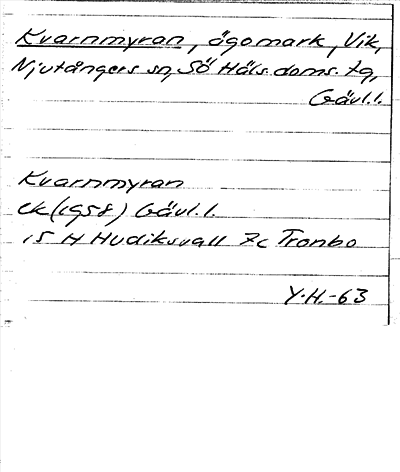 Kvarnmyran, ägomark, Vik,
Njutångers sn, Sö Häls. doms. tg,
Gävl.l.
Kvarnmyran
ek (1958) Gävl.l.
15 H Hudiksvall 7c Tronbo
Y.H.-63